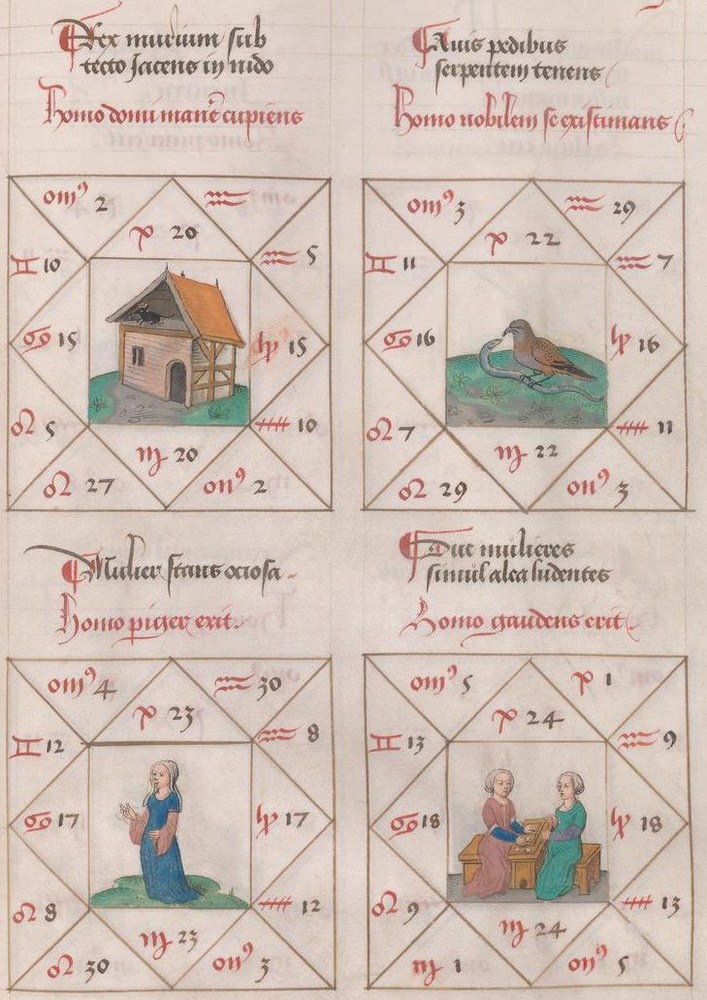 Rex murium sub
tecto Jacens in nido
Homo domi man'e cupiens
2
♒
20
♊ 10
♒ 5
♋ 15
15
♌ 5
10
♍ 20
♌ 27
2
Auis pedibus
serpentem tenens
Homo nobilem se existimans
3
♒ 29
22
♊ 11
♒ 7
♋ 16
16
♌ 7
11
♍ 22
♌ 29
3
Mulier stans ociosa
Homo piger erit.
4
♒ 30
23
♊ 12
♒ 8
♋ 17
17
♌ 8
12
♍ 23
♌ 30
3
Due mulieres
simul alea ludentes
Homo gaudens erit
5
1
24
♊ 13
♒ 9
♋ 18
18
♌ 9
13
♍ 24
♍ 1
5